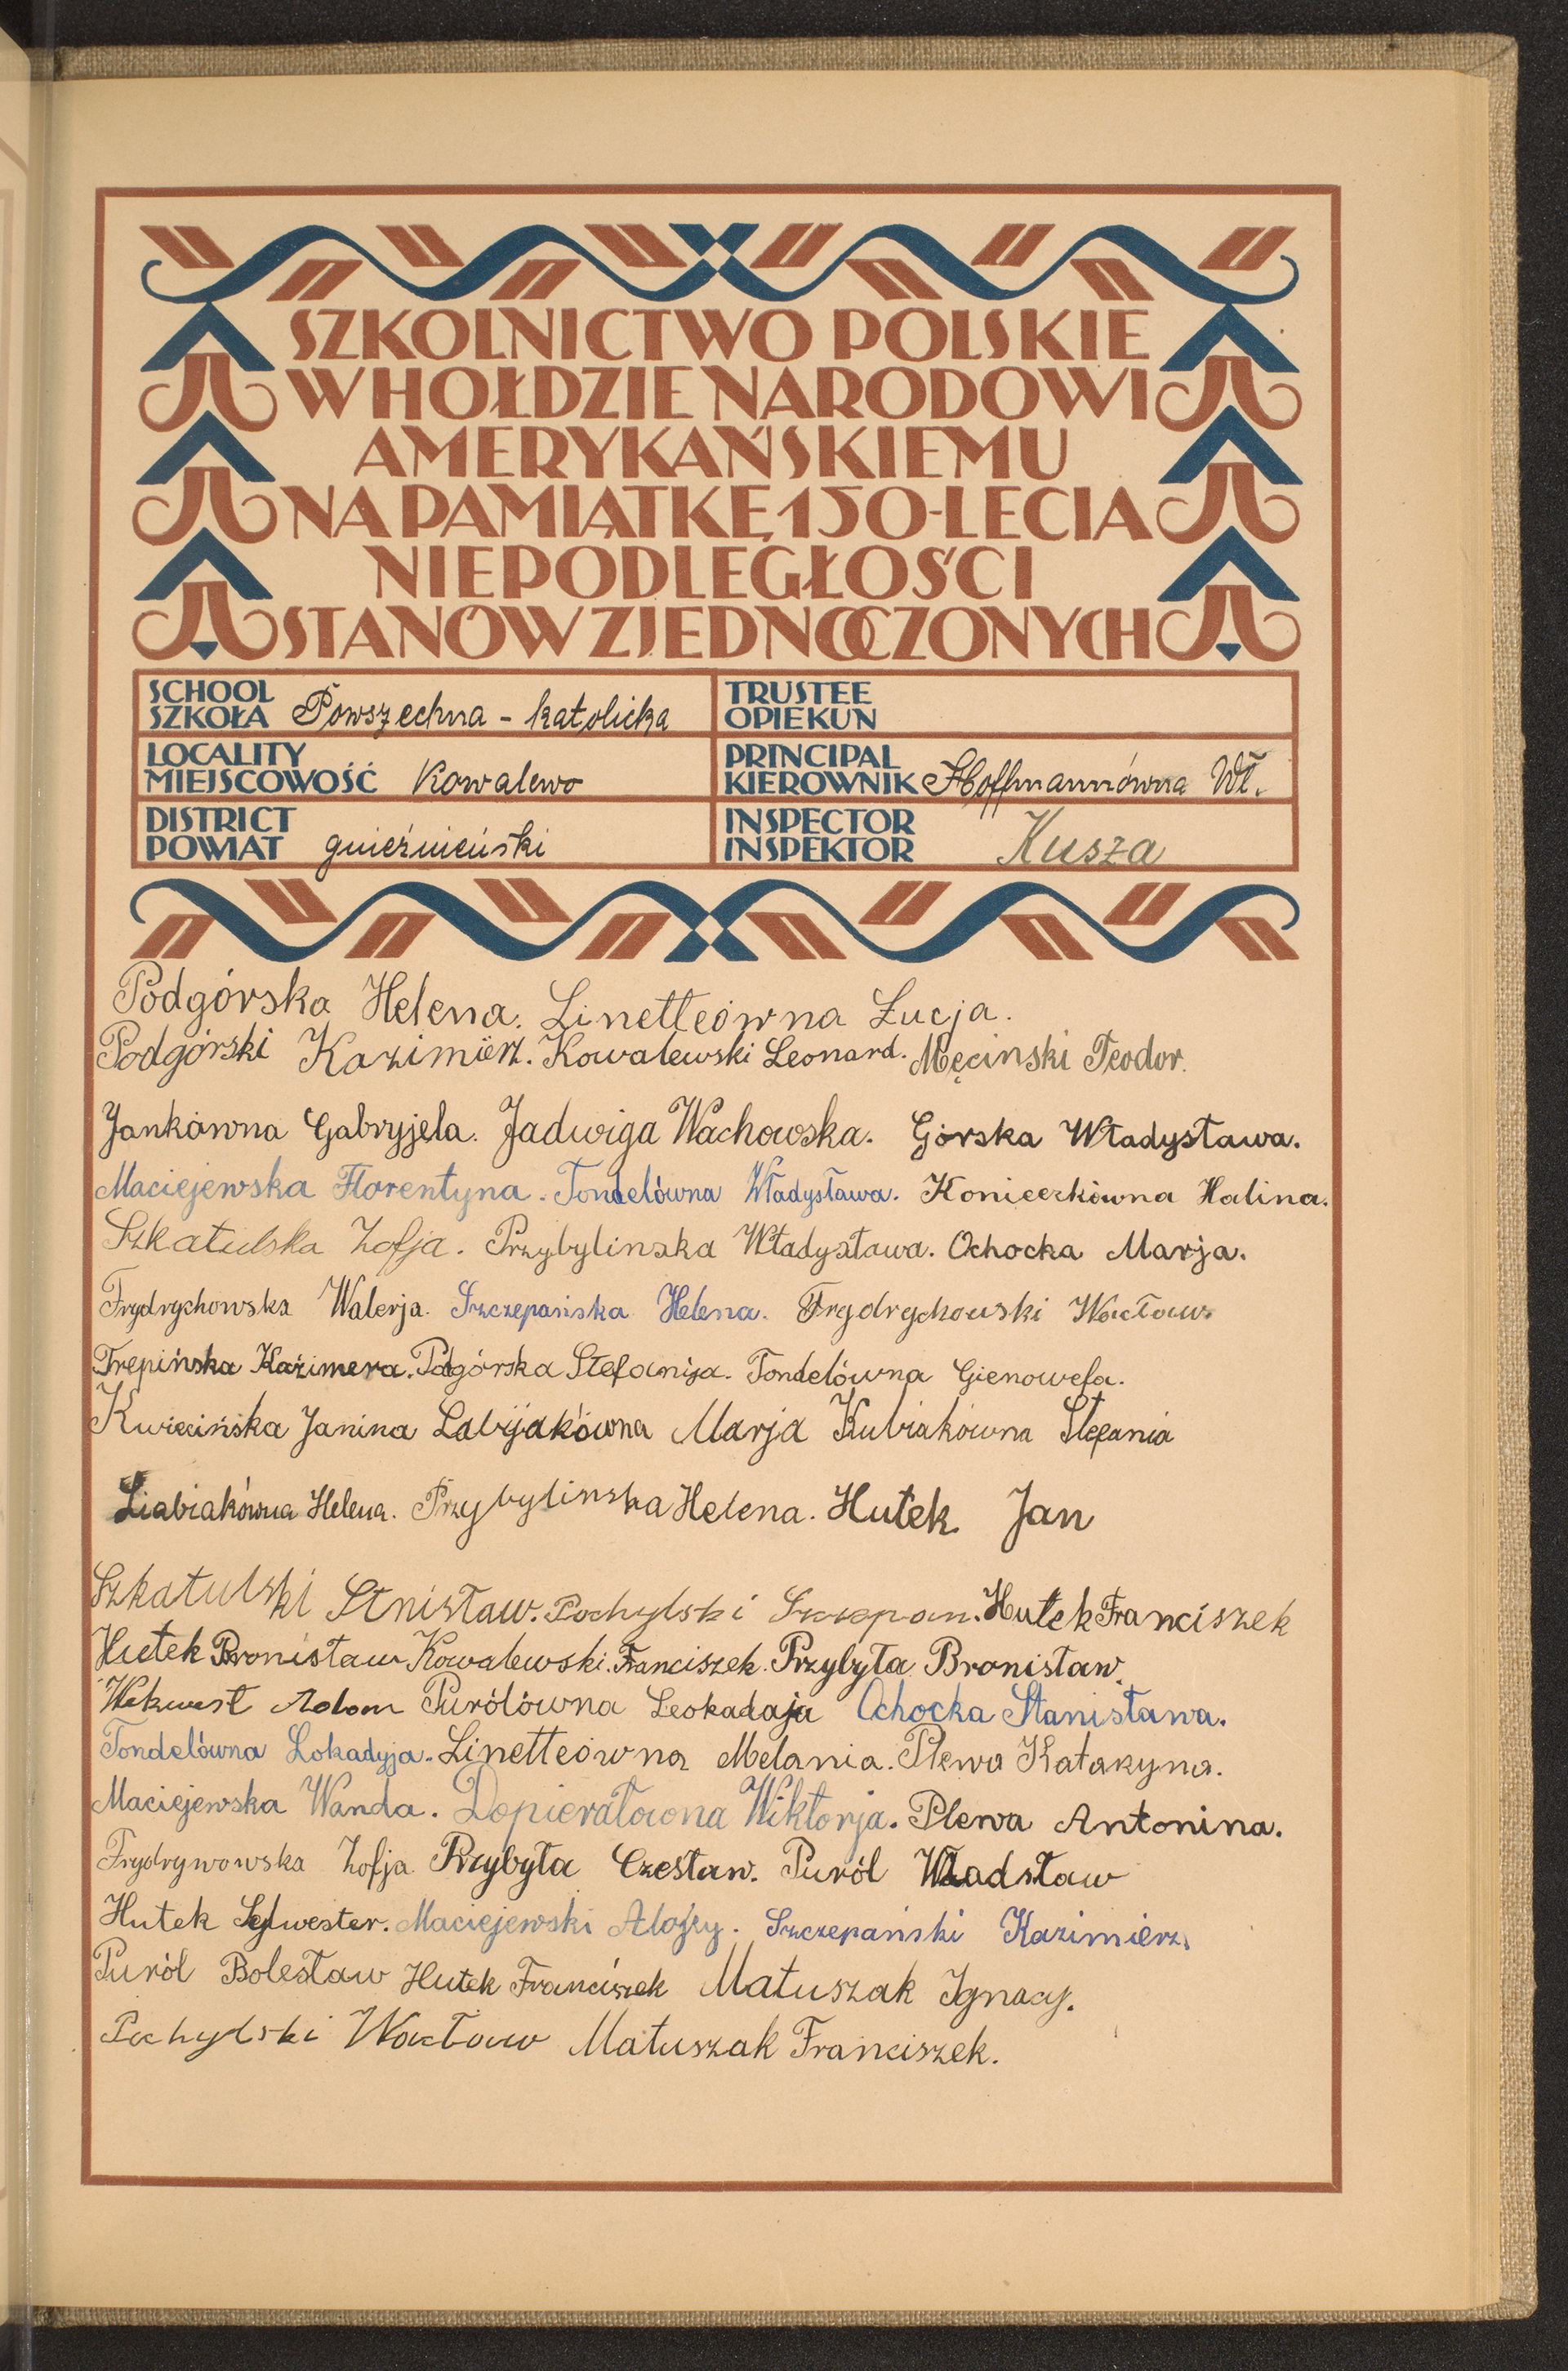 SZKOLNICTWO POLSKIE
W HOŁDZIE NARODOWI
AMERYKAŃSKIEMU
NA PAMIĄTKĘ 150-LECIA
NIEPODLEGŁOŚCI
STANÓW ZJEDNOCZONYCH
SCHOOL
SZKOŁA Powszechna - katolicka
TRUSTEE
OPIEKUN
LOCALITY
MIEJSCOWOŚĆ Kowalewo
PRINCIPAL
KIEROWNIK Hoffmannówna Wł.
DISTRICT
POWIAT gnieźnieński
INSPECTOR
INSPEKTOR Kusza
Podgórska Helena. Linetteówna Łucja.
Podgórski Kazimierz. Kowalewski Leonard. Męcinski Teodor.
Jankówna Gabryjela. Jadwiga Wachowska. Górska Władysława.
Maciejewska Florentyna. Tondelówna Władysława. Konieczkówna Halina.
Szkatulska Zofja. Przybylinska Władysława. Ochocka Marja.
Frydrychowska Walerja. Szczepańska Helena. Frydrychowski Wacław.
Trepińska Kazimera. Podgórska Stefanija. Tondelówna Gienowefa.
Kwiecińska Janina Labijakówna Marja Kubiakówna Stefania
Liabiakówna Helena. Przybylinska Helena. Hutek Jan
Szkatulski Stnisław. Pochylski Szczepan. Hutek Franciszek
Hutek Bronisław Kowalewski. Franciszek. Przybyła Bronisław.
Adam Purólówna Leokadaja Ochocka Stanisława.
Tondelówna Lokadyja. Linetteówna Melania. Plewa Katakyna.
Maciejewska Wanda. Dopierałowna Wiktorja. Plewa Antonina.
Frydrywowska Zofja Przybyła Czesław. Puról Władsław
Hutek Sylwester. Maciejewski Alojzy. Szczepański Kazimierz.
Puról Bolesław Hutek Franciszek Matuszak Ignacy.
Pochylski Wacław Matuszak Franciszek.